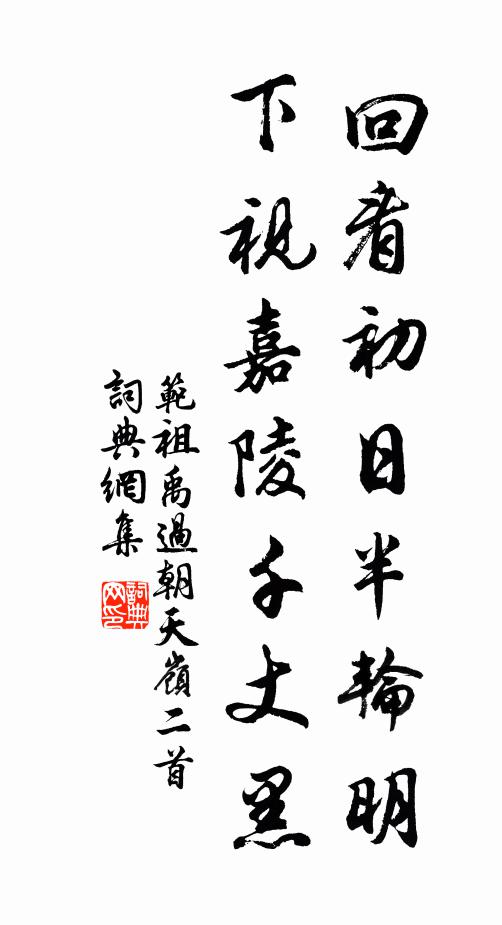 回看初日半輪明
下視嘉陵千丈黑
範祖禹過朝天嶺二首
詞典網集
詞典
网印